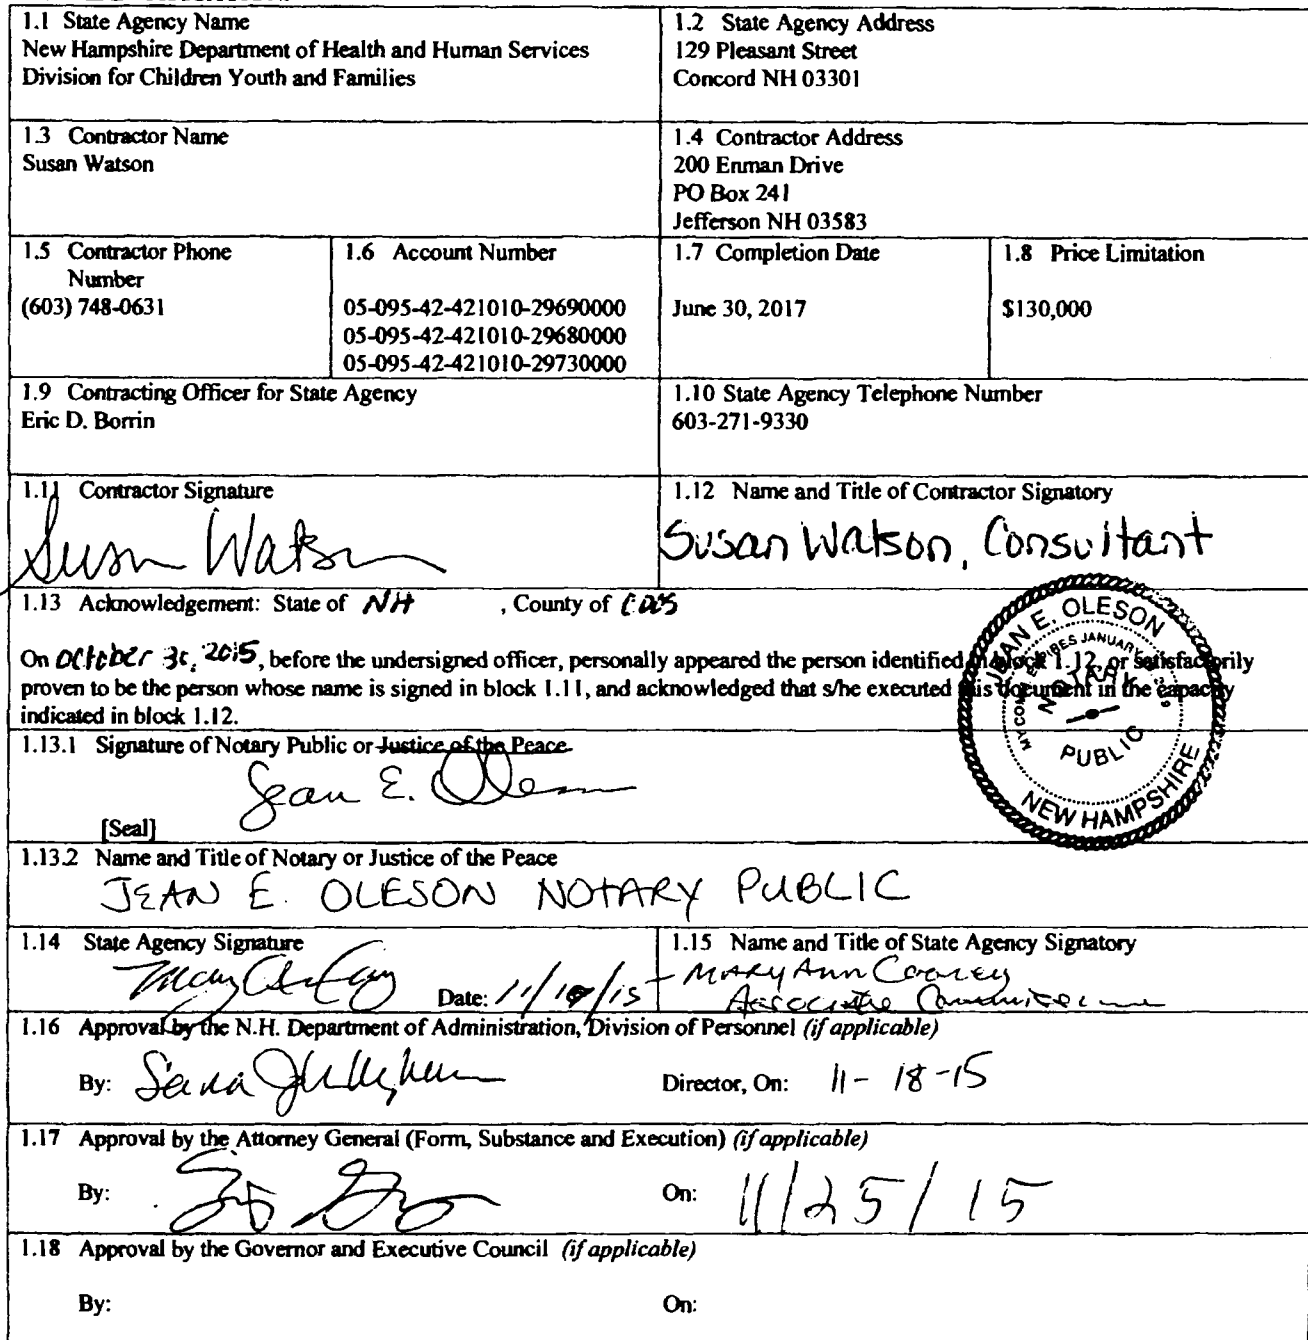 1.1 State Agency Name
New Hampshire Department of Health and Human Services
Division for Children Youth and Families
1.2 State Agency Address
129 Pleasant Street
Concord NH 03301
1.3 Contractor Name
Susan Watson
1.4 Contractor Address
200 Enman Drive
PO Box 241
Jefferson NH 03583
1.5 Contractor Phone
Number
(603) 748-0631
1.6 Account Number
05-095-42-421010-29690000
05-095-42-421010-29680000
05-095-42-421010-29730000
1.7 Completion Date
June 30, 2017
1.8 Price Limitation
$130,000
1.9 Contracting Officer for State Agency
Eric D. Borrin
1.10 State Agency Telephone Number
603-271-9330
1.11 Contractor Signature
Susan Watson
1.12 Name and Title of Contractor Signatory
Susan Watson, Consultant
1.13 Acknowledgement: State of NH , County of COOS
On October 30, 2015, before the undersigned officer, personally appeared the person identified in block 1.12, or satisfactorily
proven to be the person whose name is signed in block 1.11, and acknowledged that s/he executed this document in the capacity
indicated in block 1.12.
JEAN E. OLESON
MY COMM. EXPIRES JANUARY
NOTARY
PUBLIC
NEW HAMPSHIRE
1.13.1 Signature of Notary Public or Justice of the Peace
Jean E. Oleson
[Seal]
1.13.2 Name and Title of Notary or Justice of the Peace
JEAN E. OLESON NOTARY PUBLIC
1.14 State Agency Signature
Date: 11/10/15
1.15 Name and Title of State Agency Signatory
Mary Ann Cooney
Associate Commissioner
1.16 Approval by the N.H. Department of Administration, Division of Personnel (if applicable)
By:
Director, On: 11-18-15
1.17 Approval by the Attorney General (Form, Substance and Execution) (if applicable)
By:
On: 11/25/15
1.18 Approval by the Governor and Executive Council (if applicable)
By:
On: